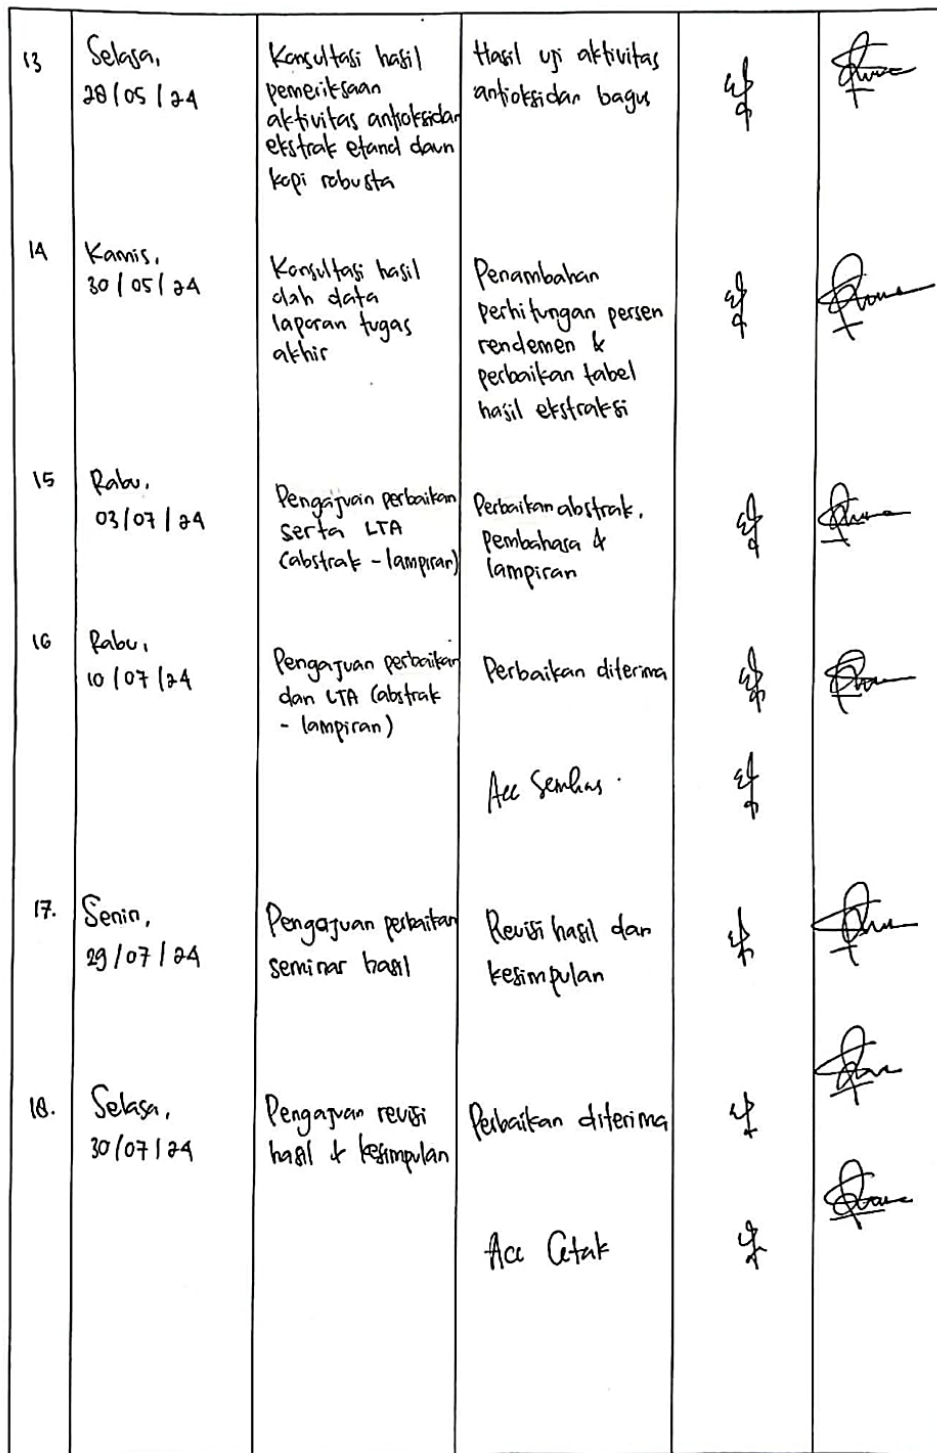 13
Selasa,
28/05/24
Konsultasi hasil
pemeriksaan
aktivitas antioksidan
ekstrak etanol daun
kopi robusta
Hasil uji aktivitas
antioksidan bagus
14
Kamis,
30/05/24
Konsultasi hasil
olah data
laporan tugas
akhir
Penambahan
perhitungan persen
rendemen &
perbaikan tabel
hasil ekstraksi
15
Rabu,
03/07/24
Pengajuan perbaikan
serta LTA
(abstrak - lampiran)
Perbaikan abstrak,
pembahasa &
lampiran
16
Rabu,
10/07/24
Pengajuan perbaikan
dan LTA (abstrak
- lampiran)
Perbaikan diterima
Acc Semhas.
17.
Senin,
29/07/24
Pengajuan perbaikan
seminar hasil
Revisi hasil dan
kesimpulan
18.
Selasa,
30/07/24
Pengajuan revisi
hasil & kesimpulan
Perbaikan diterima
Acc Cetak